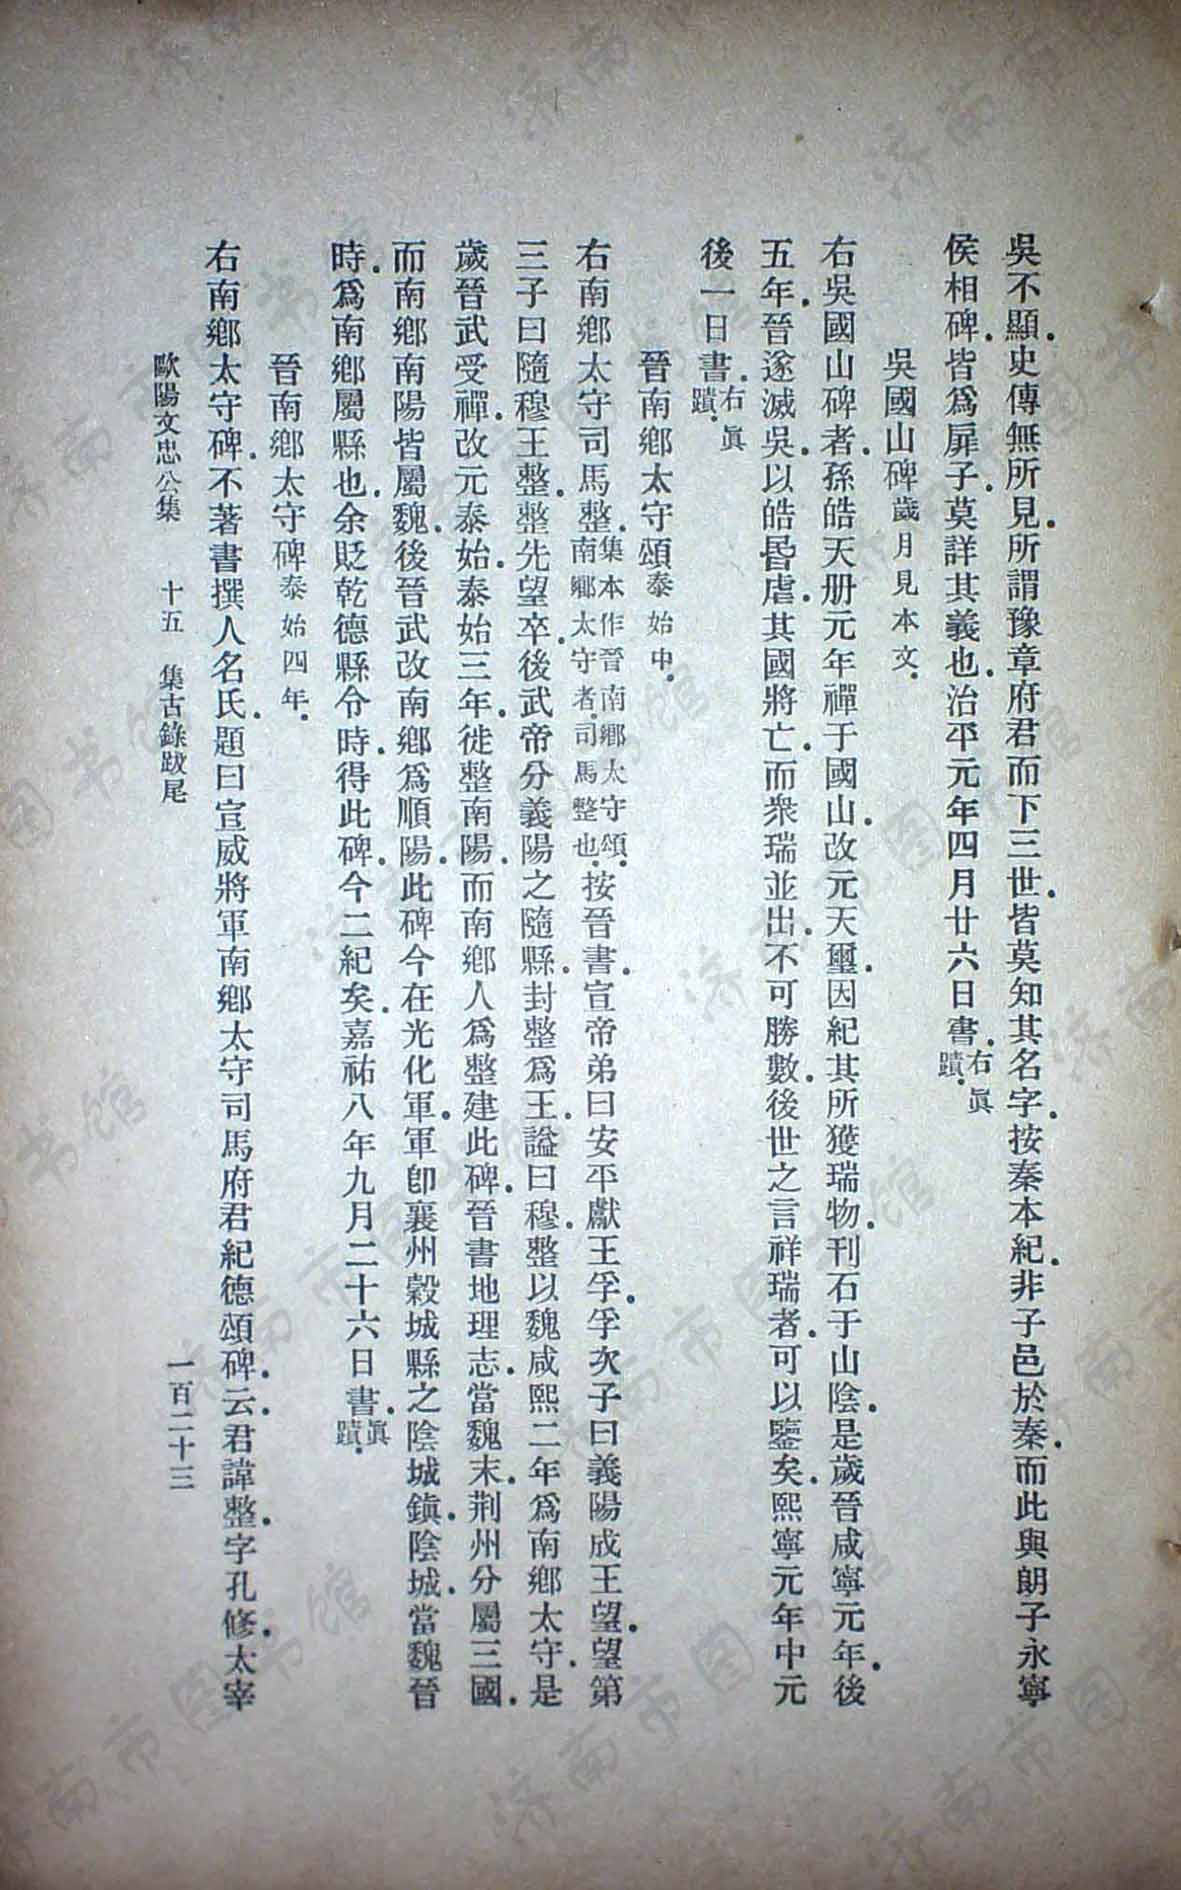 吳不顯．史傳無所見．所謂豫章府君而下三世．皆莫知其名字．按秦本紀．非子邑於秦．而此與朗子永寧
侯相碑．皆爲扉子．莫詳其義也．治平元年四月廿六日書．右眞蹟．
吳國山碑歲月見本文．
右吳國山碑者．孫皓天册元年禪于國山．改元天璽．因紀其所獲瑞物．刊石于山陰．是歲晉咸寧元年．後
五年．晉遂滅吳．以皓昬虐．其國將亡．而衆瑞並出．不可勝數．後世之言祥瑞者．可以鑒矣．熙寧元年中元
後一日書．右眞蹟．
晉南鄉太守頌泰始中．
右南鄉太守司馬整．集本作晉南鄉太守頌．南鄉太守者．司馬整也．按晉書．宣帝弟曰安平獻王孚．孚次子曰義陽成王望．望第
三子曰隨穆王整．整先望卒．後武帝分義陽之隨縣．封整爲王．謚曰穆．整以魏咸熙二年爲南鄉太守．是
歲晉武受禪．改元泰始．泰始三年．徙整南陽．而南鄉人爲整建此碑．晉書地理志．當魏末．荆州分屬三國．
而南鄉南陽皆屬魏．後晉武改南鄉爲順陽．此碑今在光化軍．軍卽襄州穀城縣之陰城鎮．陰城．當魏晉
時．爲南鄉屬縣也．余貶乾德縣令時．得此碑．今二紀矣．嘉祐八年九月二十六日書．眞蹟．
晉南鄉太守碑泰始四年．
右南鄉太守碑．不著書撰人名氏．題曰宣威將軍南鄉太守司馬府君紀德頌碑．云．君諱整．字孔修．太宰
歐陽文忠公集　十五　集古錄跋尾　一百二十三
济南市图书馆